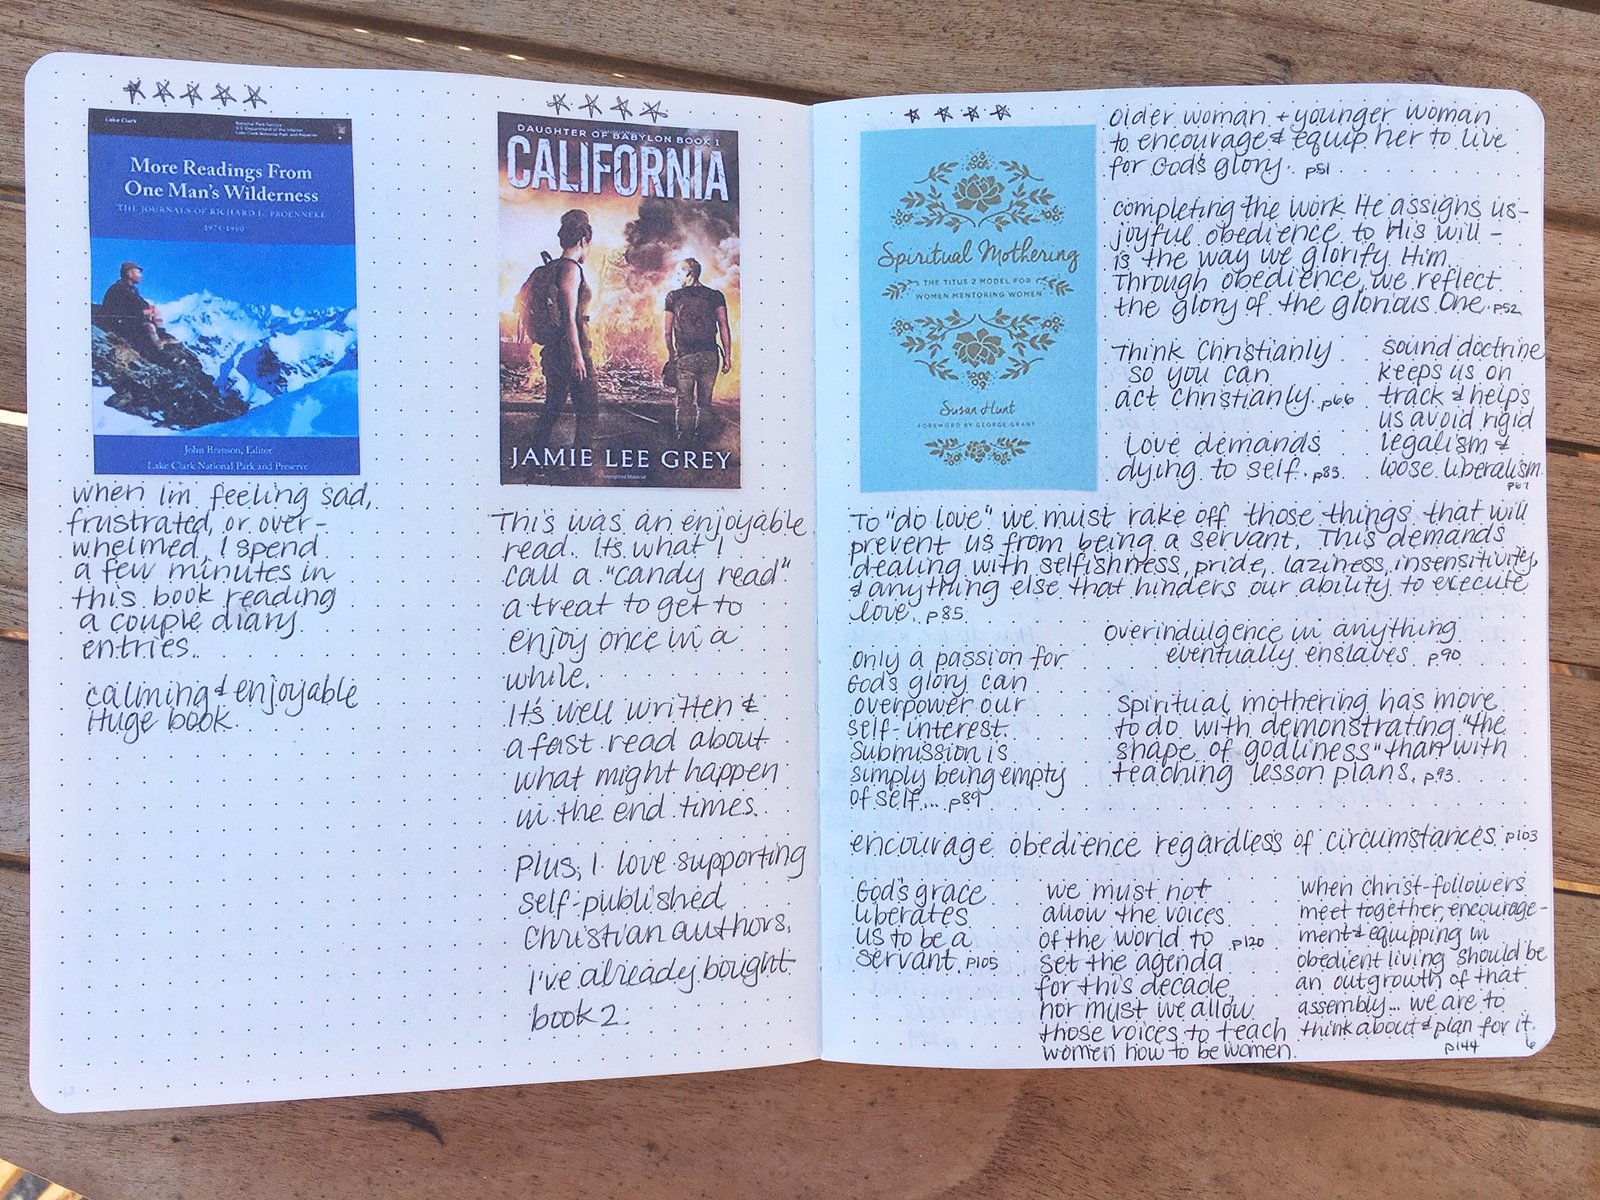 Lake Clark
National Park Service
U.S. Department of the Interior
Lake Clark National Park and Preserve
More Readings From
One Man's Wilderness
THE JOURNALS OF RICHARD L. PROENNEKE
1974-1980
John Branson, Editor
Lake Clark National Park and Preserve
when I'm feeling sad,
frustrated, or over-
whelmed, I spend
a few minutes in
this book reading
a couple diary
entries.
calming & enjoyable
Huge book.
DAUGHTER OF BABYLON BOOK 1
CALIFORNIA
JAMIE LEE GREY
This was an enjoyable
read. It's what I
call a "candy read"
a treat to get to
enjoy once in a
while.
It's well written &
a fast read about
what might happen
in the end times.
Plus, I love supporting
self-published
Christian authors.
I've already bought
book 2.
Spiritual Mothering
THE TITUS 2 MODEL FOR
WOMEN MENTORING WOMEN
Susan Hunt
FOREWORD BY GEORGE GRANT
older woman + younger woman
to encourage & equip her to live
for God's glory. p51
completing the work He assigns us-
joyful obedience to His will -
is the way we glorify Him.
Through obedience, we reflect
the glory of the glorious One. p52
Think Christianly
so you can
act Christianly. p66
sound doctrine
keeps us on
track & helps
us avoid rigid
legalism &
loose liberalism.
p67
Love demands
dying to self. p83
To "do love" we must rake off those things that will
prevent us from being a servant. This demands
dealing with selfishness, pride, laziness, insensitivity,
& anything else that hinders our ability to execute
love. p85
overindulgence in anything
eventually enslaves p90
only a passion for
God's glory can
overpower our
self-interest.
Submission is
simply being empty
of self... p89
Spiritual mothering has more
to do with demonstrating "the
shape of godliness" than with
teaching lesson plans. p93
encourage obedience regardless of circumstances p103
God's grace
liberates
us to be a
servant. p105
we must not
allow the voices
of the world to p120
set the agenda
for this decade,
nor must we allow
those voices to teach
women how to be women.
when Christ-followers
meet together, encourage-
ment & equipping in
obedient living should be
an outgrowth of that
assembly... we are to
think about & plan for it.
p144
6